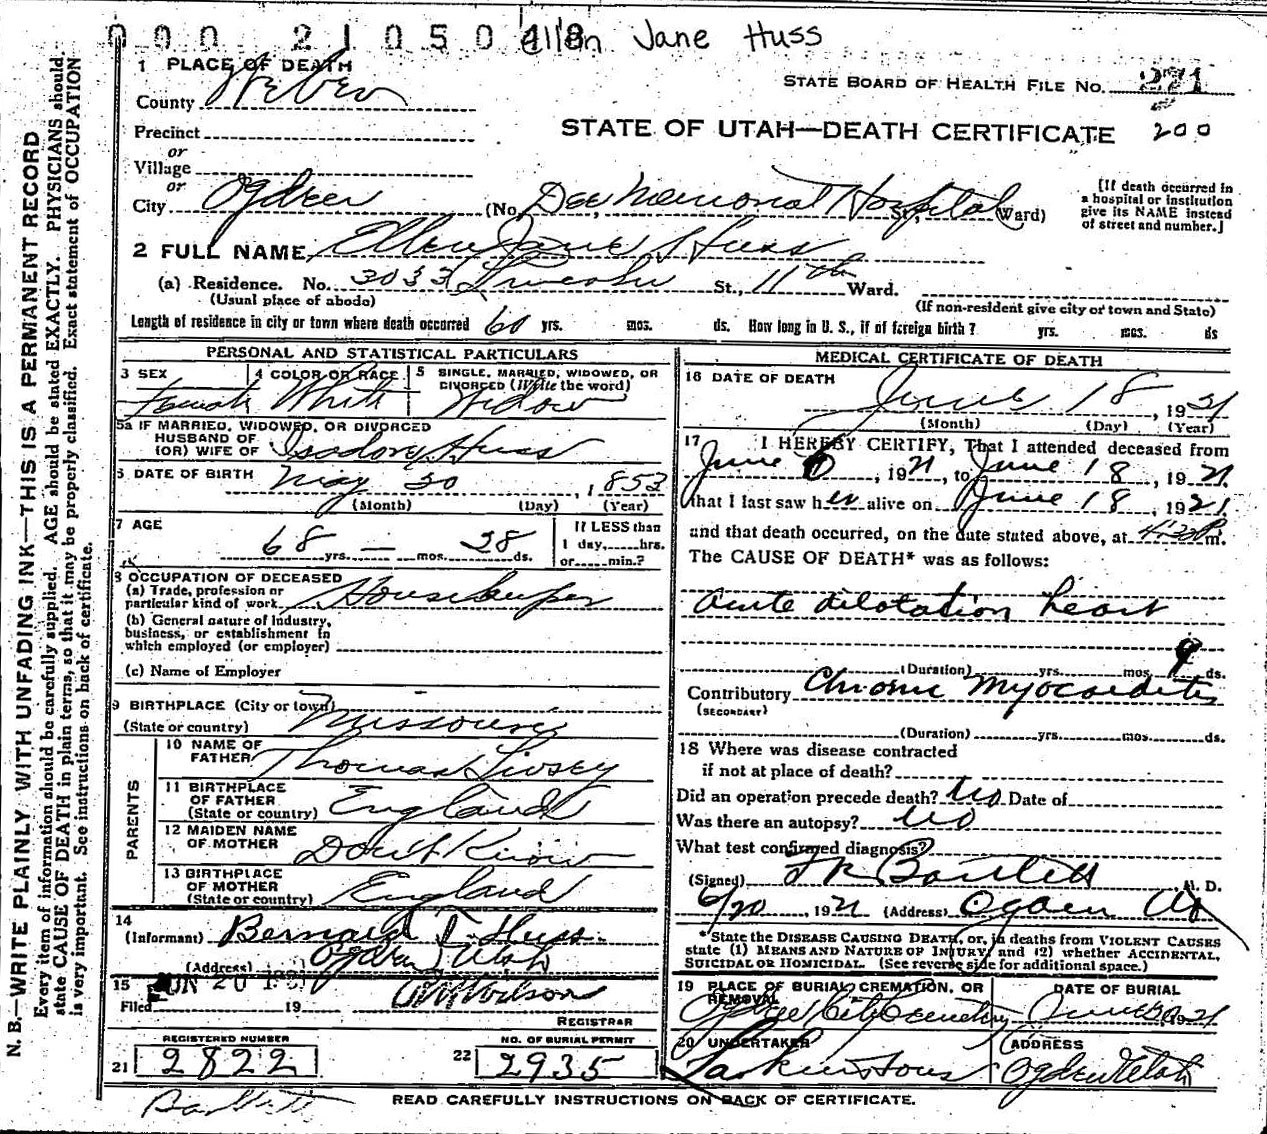 000 2105048 Ellen Jane Huss
1 PLACE OF DEATH
STATE BOARD OF HEALTH FILE NO. 271
County Weber
200
STATE OF UTAH—DEATH CERTIFICATE
Precinct
or
Village
or
City Ogden (No. Dee Memorial Hospital St., Ward)
[If death occurred in
a hospital or institution
give its NAME instead
of street and number.]
2 FULL NAME Ellen Jane Huss
(a) Residence. No. 3033 Lincoln St., 11th Ward.
(Usual place of abode) (If non-resident give city or town and State)
Length of residence in city or town where death occurred 60 yrs. mos. ds. How long in U. S., if of foreign birth? yrs. mos. ds
PERSONAL AND STATISTICAL PARTICULARS
3 SEX 4 COLOR OR RACE 5 SINGLE, MARRIED, WIDOWED, OR
DIVORCED (Write the word)
Female White Widow
5a IF MARRIED, WIDOWED, OR DIVORCED
HUSBAND OF
(OR) WIFE OF Isadore Huss
6 DATE OF BIRTH May 20, 1853
(Month) (Day) (Year)
7 AGE If LESS than
1 day,.....hrs.
68 yrs. — mos. 28 ds. or.....min.?
8 OCCUPATION OF DECEASED
(a) Trade, profession or
particular kind of work Housekeeper
(b) General nature of industry,
business, or establishment in
which employed (or employer)
(c) Name of Employer
9 BIRTHPLACE (City or town)
(State or country) Missouri
PARENTS
10 NAME OF
FATHER Thomas Livsey
11 BIRTHPLACE
OF FATHER
(State or country) England
12 MAIDEN NAME
OF MOTHER Don't Know
13 BIRTHPLACE
OF MOTHER
(State or country) England
14
(Informant) Bernard I. Huss
(Address) Ogden Utah
15 JUN 20 1921
Filed 19
REGISTRAR
REGISTERED NUMBER NO. OF BURIAL PERMIT
21 2822 22 2935
MEDICAL CERTIFICATE OF DEATH
16 DATE OF DEATH
June 18, 1921
(Month) (Day) (Year)
17 I HEREBY CERTIFY, That I attended deceased from
June, 1921, to June 18, 1921
that I last saw her alive on June 18 1921
and that death occurred, on the date stated above, at 4:30 P m.
The CAUSE OF DEATH* was as follows:
Acute dilotation heart
(Duration) yrs. mos. 9 ds.
Contributory Chronic Myocarditis
(SECONDARY)
(Duration) yrs. mos. ds.
18 Where was disease contracted
if not at place of death?
Did an operation precede death? No Date of
Was there an autopsy? No
What test confirmed diagnosis?
(Signed) Bartlett M. D.
6/20, 1921 (Address) Ogden Ut
*State the DISEASE CAUSING DEATH, or, in deaths from VIOLENT CAUSES
state (1) MEANS AND NATURE OF INJURY; and (2) whether ACCIDENTAL,
SUICIDAL OR HOMICIDAL. (See reverse side for additional space.)
19 PLACE OF BURIAL, CREMATION, OR
REMOVAL DATE OF BURIAL
Ogden City Cemetery June 20 1921
20 UNDERTAKER ADDRESS
Larkin & Sons Ogden Utah
Bartlett
READ CAREFULLY INSTRUCTIONS ON BACK OF CERTIFICATE.
N. B.—WRITE PLAINLY WITH UNFADING INK—THIS IS A PERMANENT RECORD
Every item of information should be carefully supplied. AGE should be stated EXACTLY. PHYSICIANS should
state CAUSE OF DEATH in plain terms, so that it may be properly classified. Exact statement of OCCUPATION
is very important. See instructions on back of certificate.